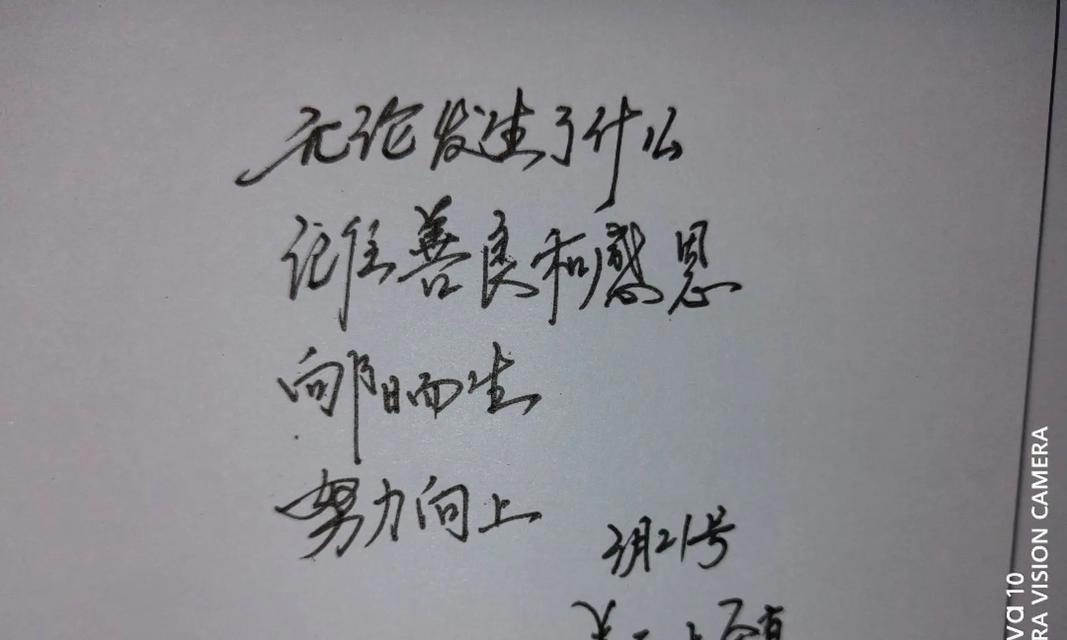 无论发生了什么
记住善良和感恩
向阳而生
努力向上
3月21号
va 10
RA VISION CAMERA